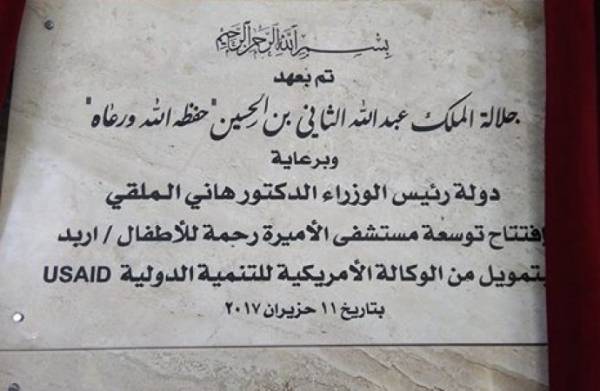 بسم الله الرحمن الرحيم
تم بعهد
جلالة الملك عبدالله الثاني بن الحسين "حفظه الله ورعاه"
وبرعاية
دولة رئيس الوزراء الدكتور هاني الملقي
إفتتاح توسعة مستشفى الأميرة رحمة للأطفال / اربد
بتمويل من الوكالة الأمريكية للتنمية الدولية USAID
بتاريخ ١١ حزيران ٢٠١٧